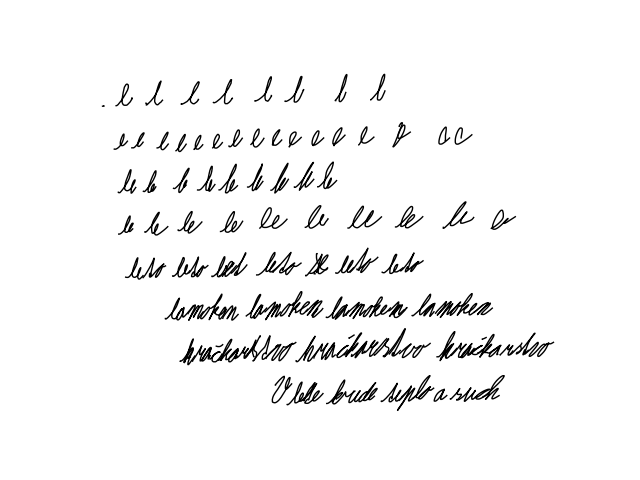 l l l l l l l l
e e e e e e e e e e e e e
le le le le le le le le
le le le le le le le le le
leto leto led leto leto leto
lamoken lamoken lamoken lamoken
hračkarstvo hračkarstvo hračkarstvo
V lete bude teplo a such